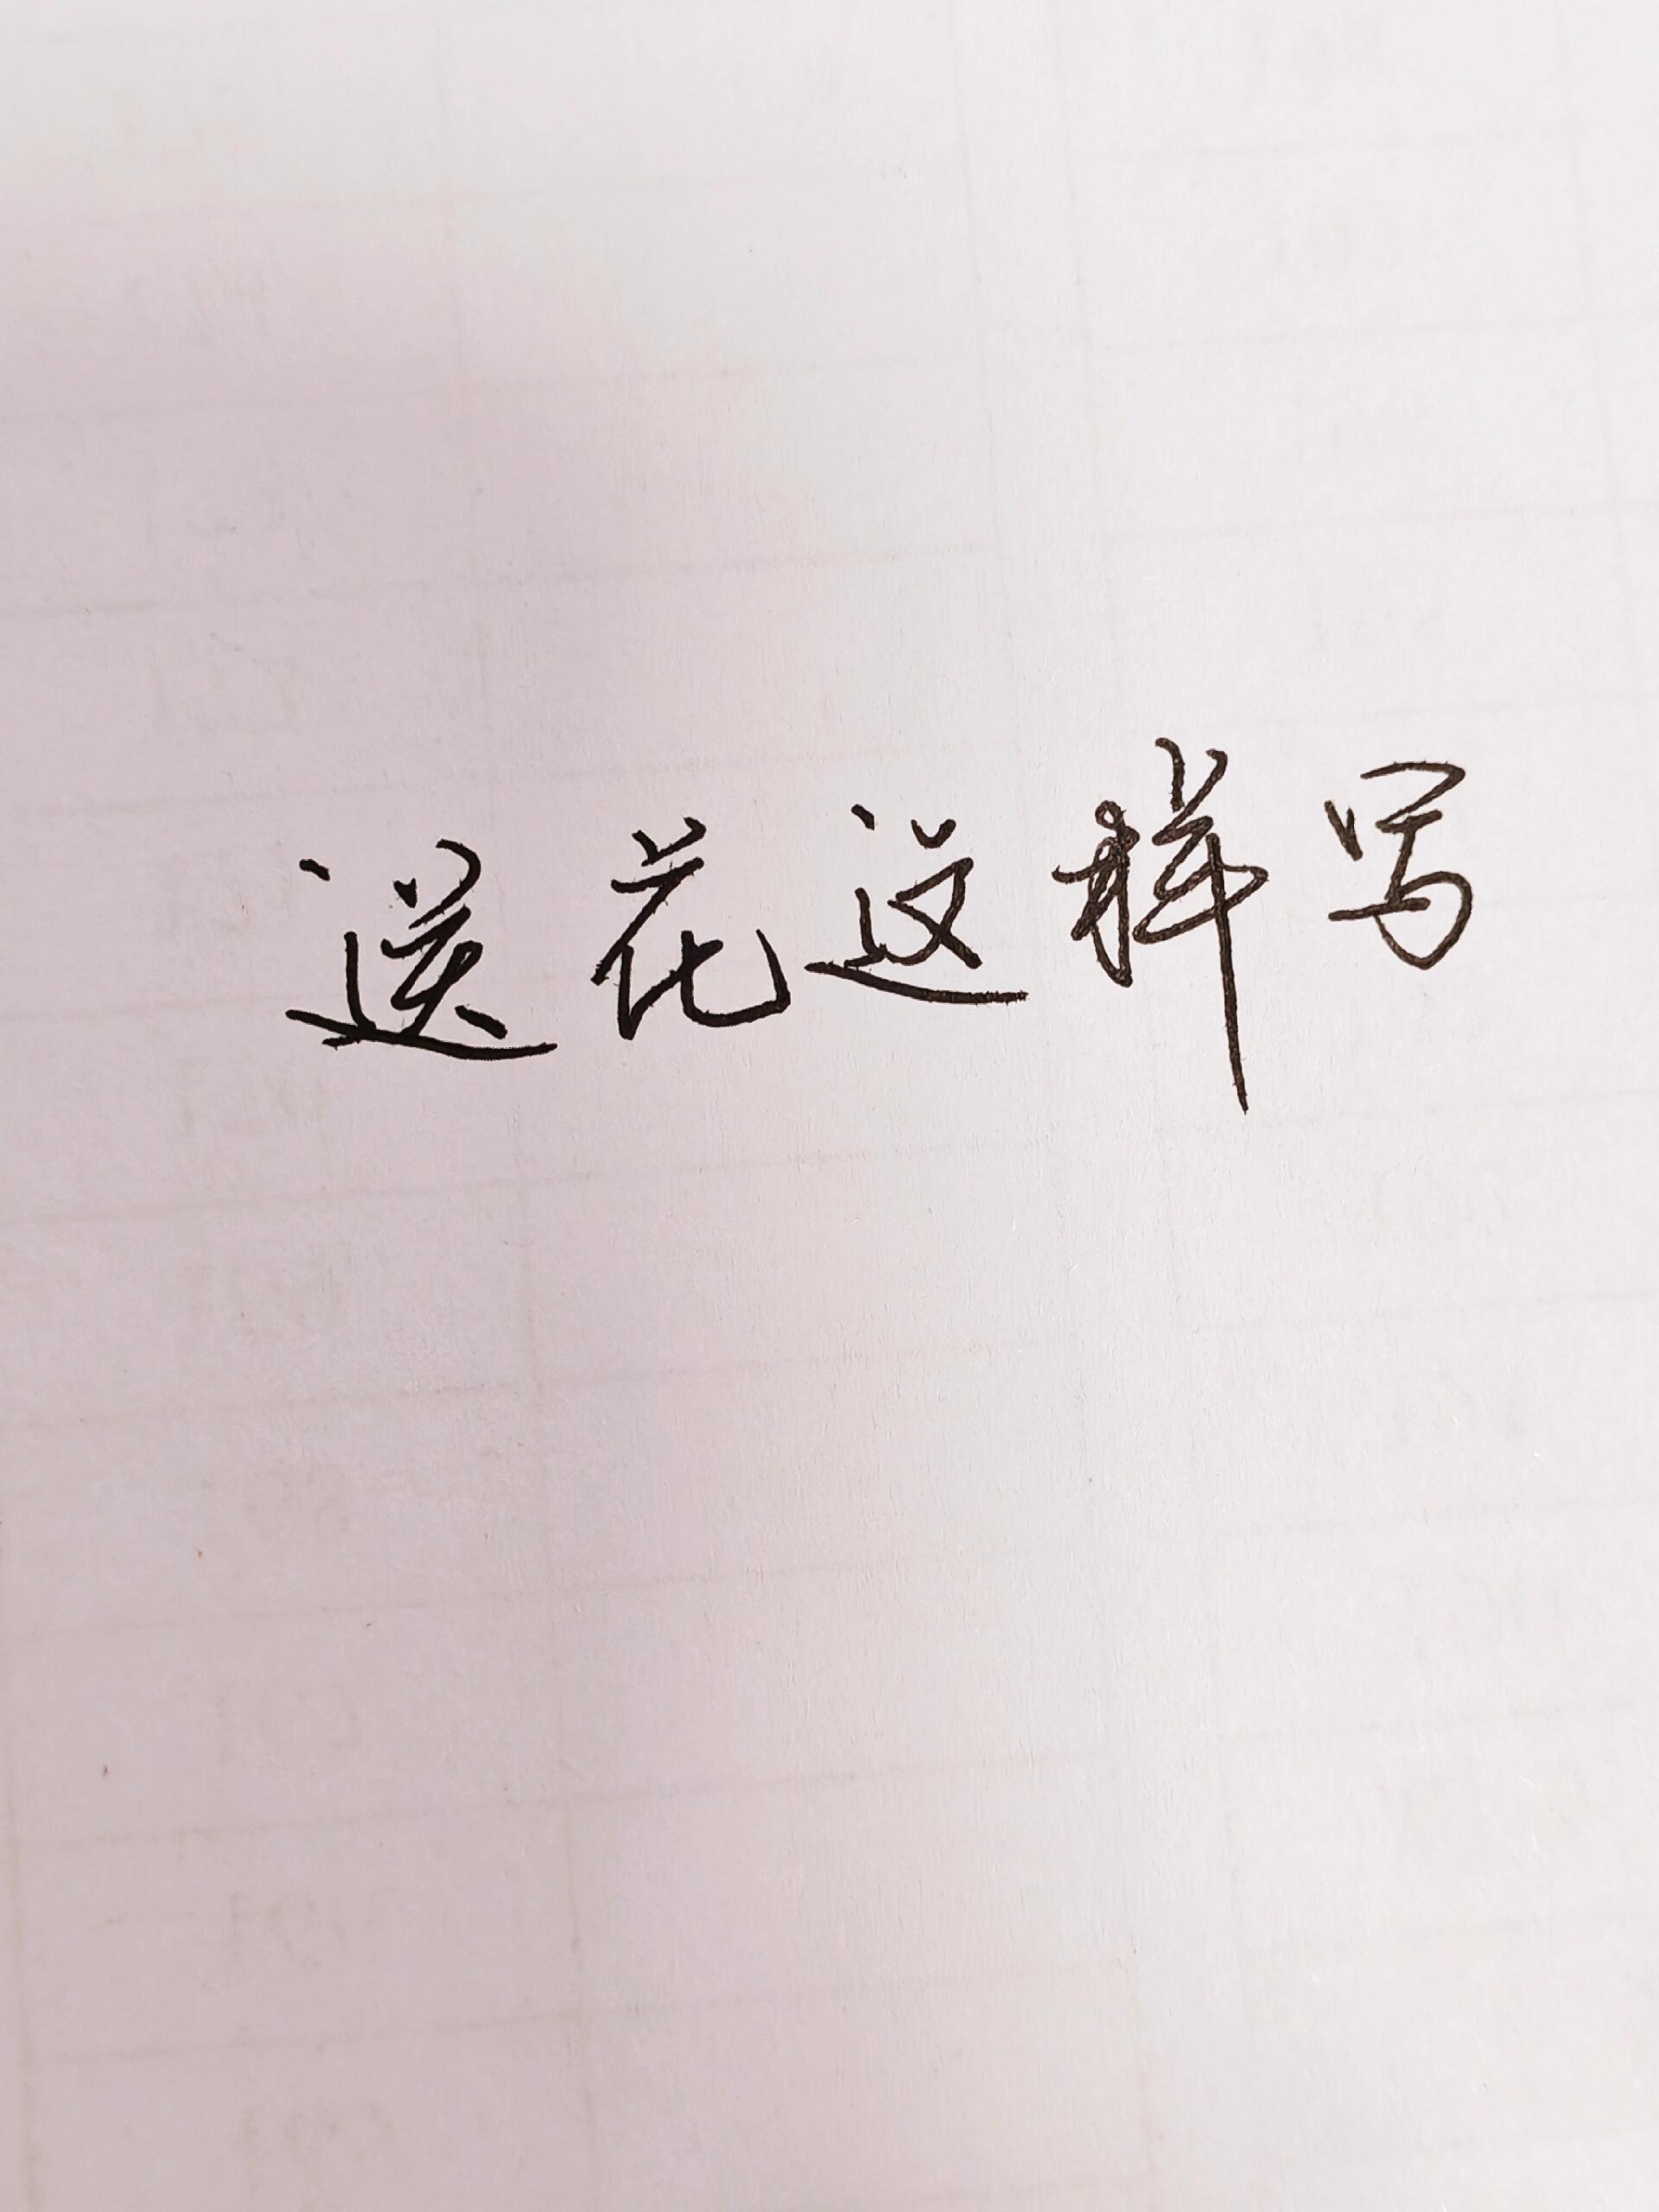 送花这样写